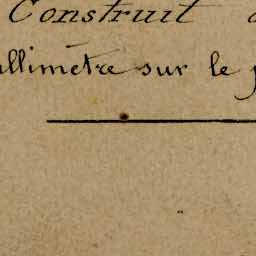 Construit
allimetre sur le